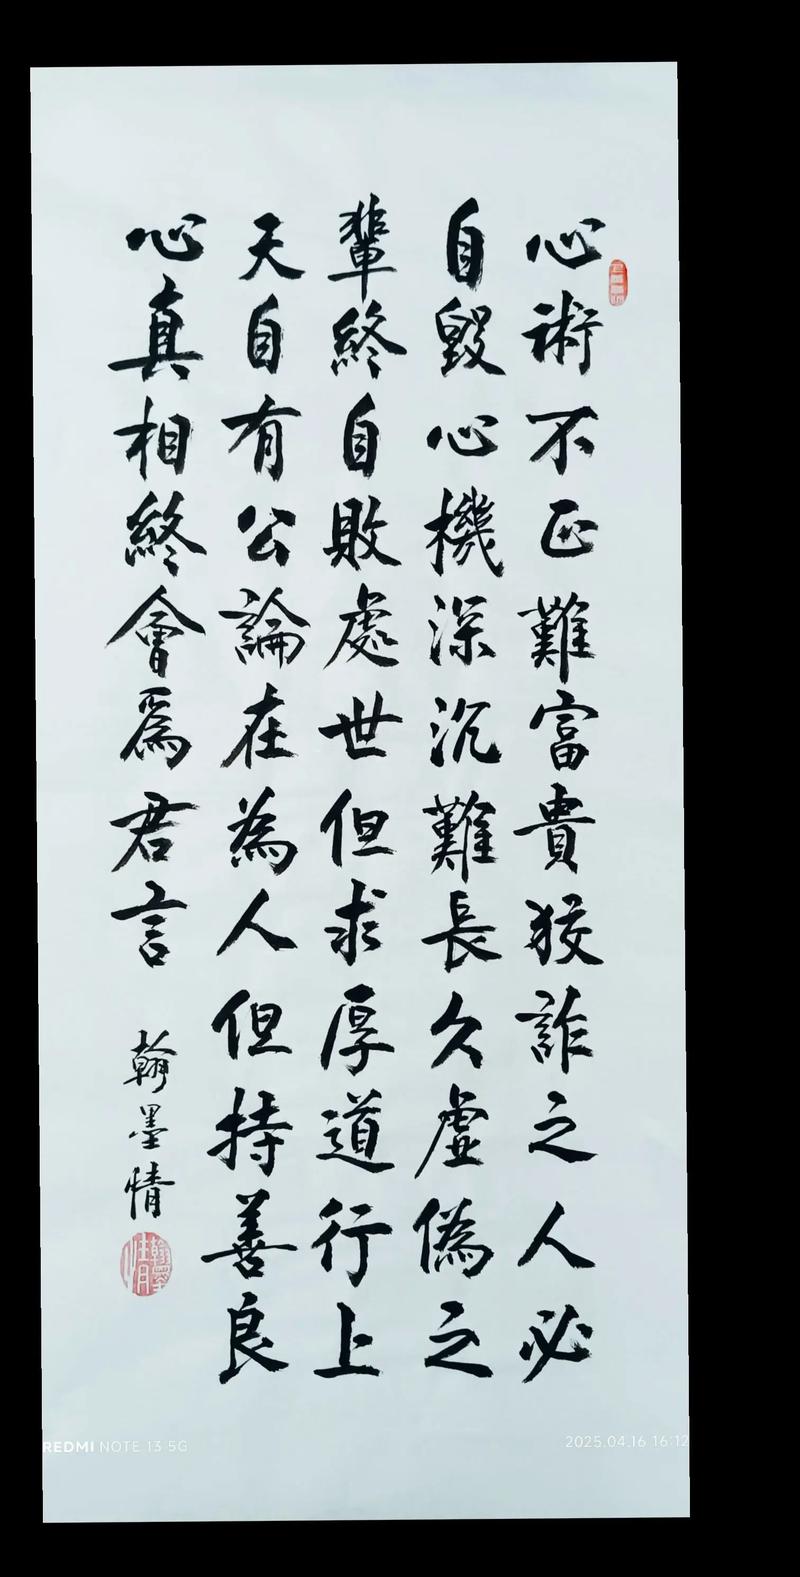 心術不正難富貴狡詐之人必
自毀心機深沉難長久虛偽之
輩終自敗處世但求厚道行上
天自有公論在為人但持善良
心真相終會爲君言
翰墨情
翰墨情
REDMI NOTE 13 5G
2025.04.16 16:12